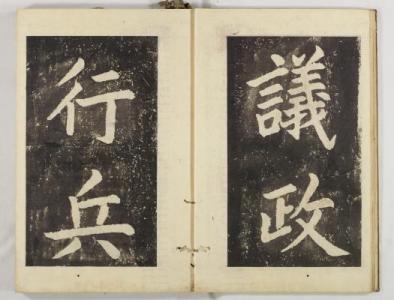 議政
行兵